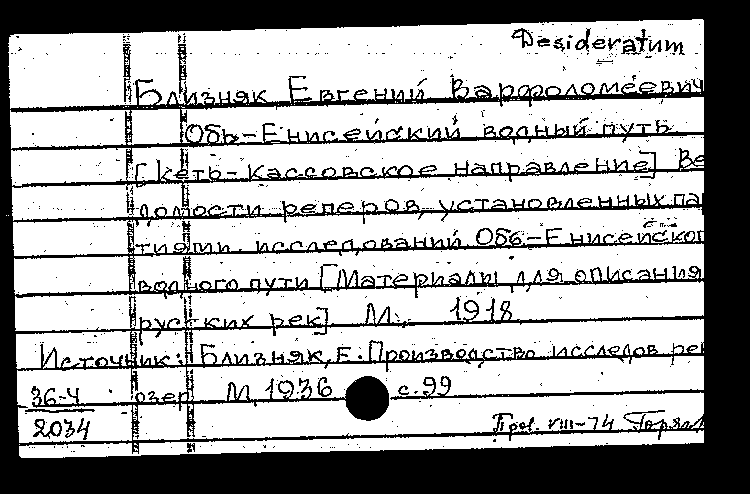 Desideratum
Близняк Евгений Варфоломеевич
Обь-Енисейский водный путь
[Кеть-Кассовское направление] Ве
домости реперов, установленных пар
тиями исследований Обь-Енисейског
водного пути [Материалы для описания
русских рек] М., 1918
Источник: Близняк, Е. Производство исследов рек
36-4 озер М, 1936 с. 99
2034
VIII-74